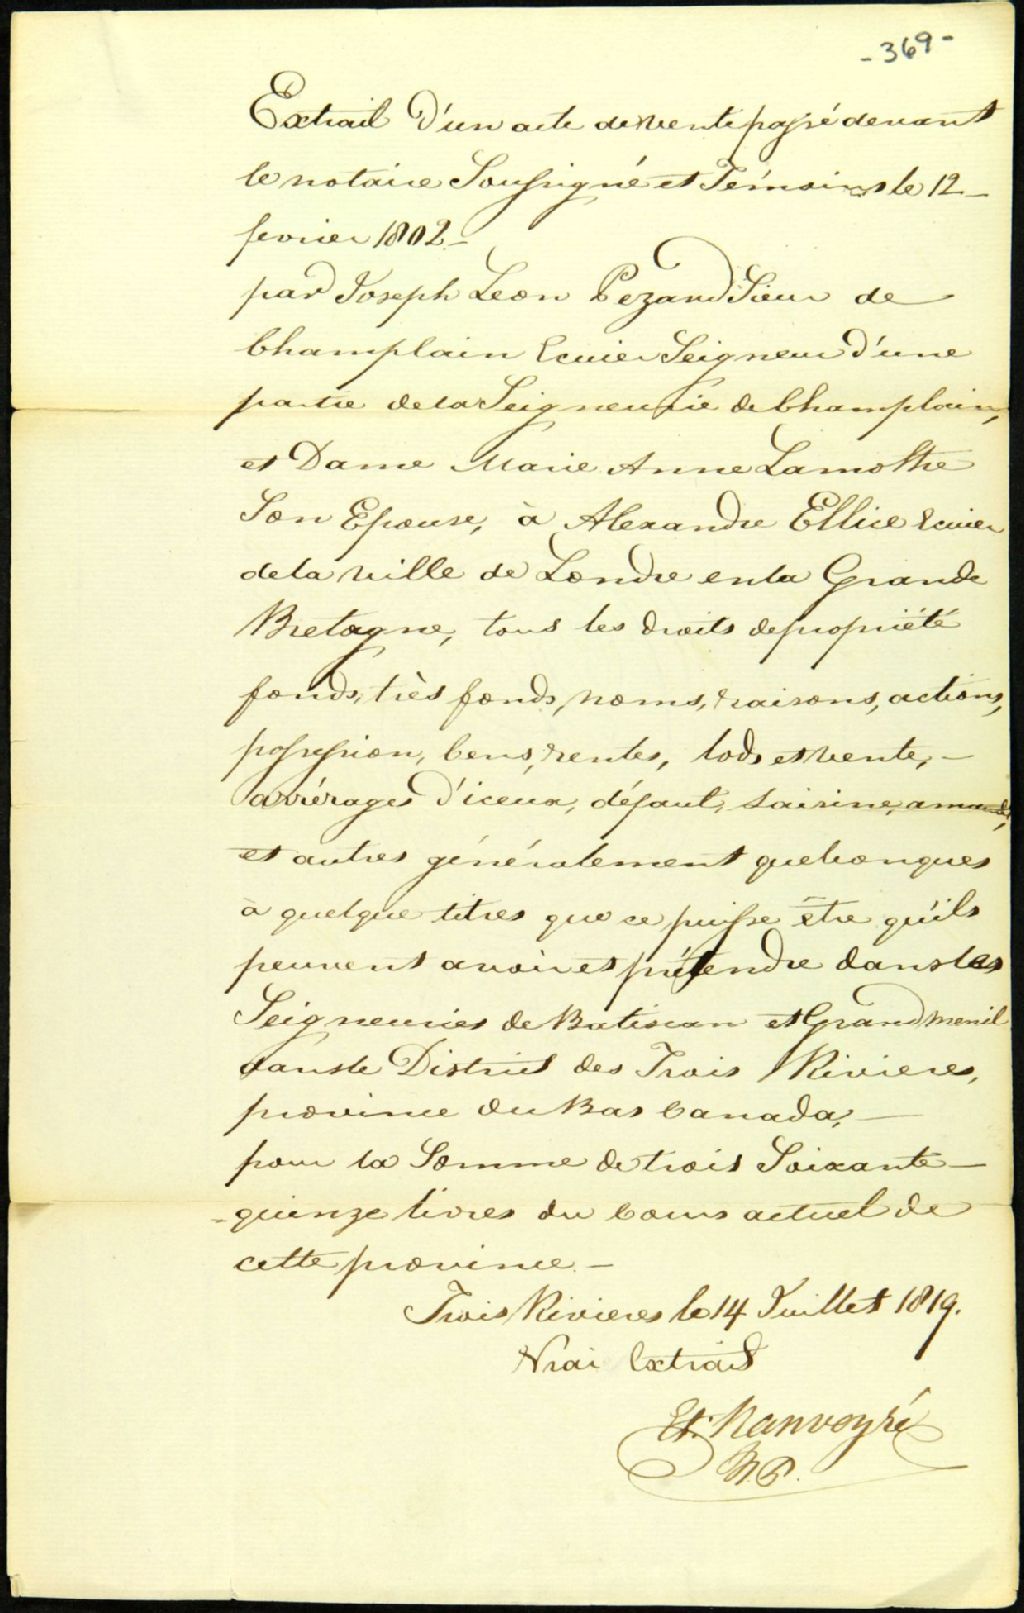 - 369 -
Extrait d'un acte de vente passé devant
le notaire Soussigné et Témoins le 12
fevrier 1802 -
par Joseph Leon Pezard Sieur de
Champlain Ecuier Seigneur d'une
partie de la Seigneurie de Champlain,
et Dame Marie Anne Lamothe
Son Epouse, à Alexandre Ellice Ecuier
de la ville de Londre en la Grande
Bretagne, tous les droits de propriété
fonds, très fonds, noms, raisons, actions,
possession, Cens, rentes, lods et vente, -
arrérages d'iceux, défaut, saisine, amende,
et autres généralement quelconques
à quelque titres que ce puisse être qu'ils
peuvent avoir et prétendre dans les
Seigneuries de Batiscan et Grand menil
dans le District des Trois Rivieres,
province du Bas Canada, -
pour la Somme de trois Soixante -
- quinze livres du Cours actuel de
cette province. -
Trois Rivieres le 14 Juillet 1819.
Vrai Extrait
Et. Ranvoyzé
N.P.